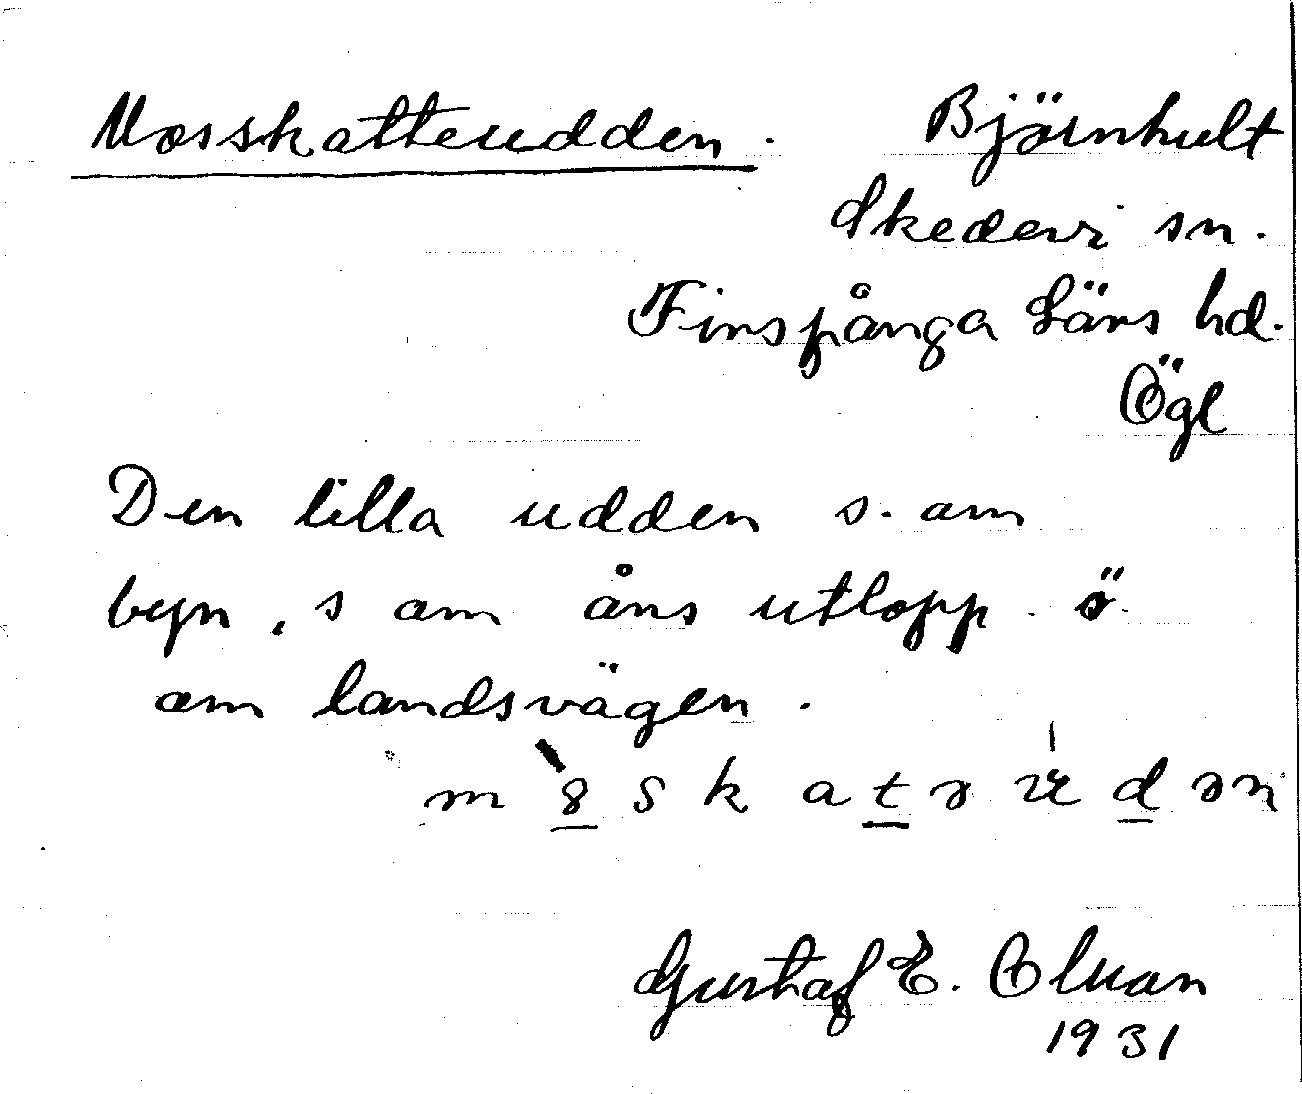 Mosskatteudden. Björnhult
Skedevi sn.
Finspånga Läns hd.
Ögl
Den lilla udden s. om
byn, s om åns utlopp ö
om landsvägen.
Gustaf E.
1931